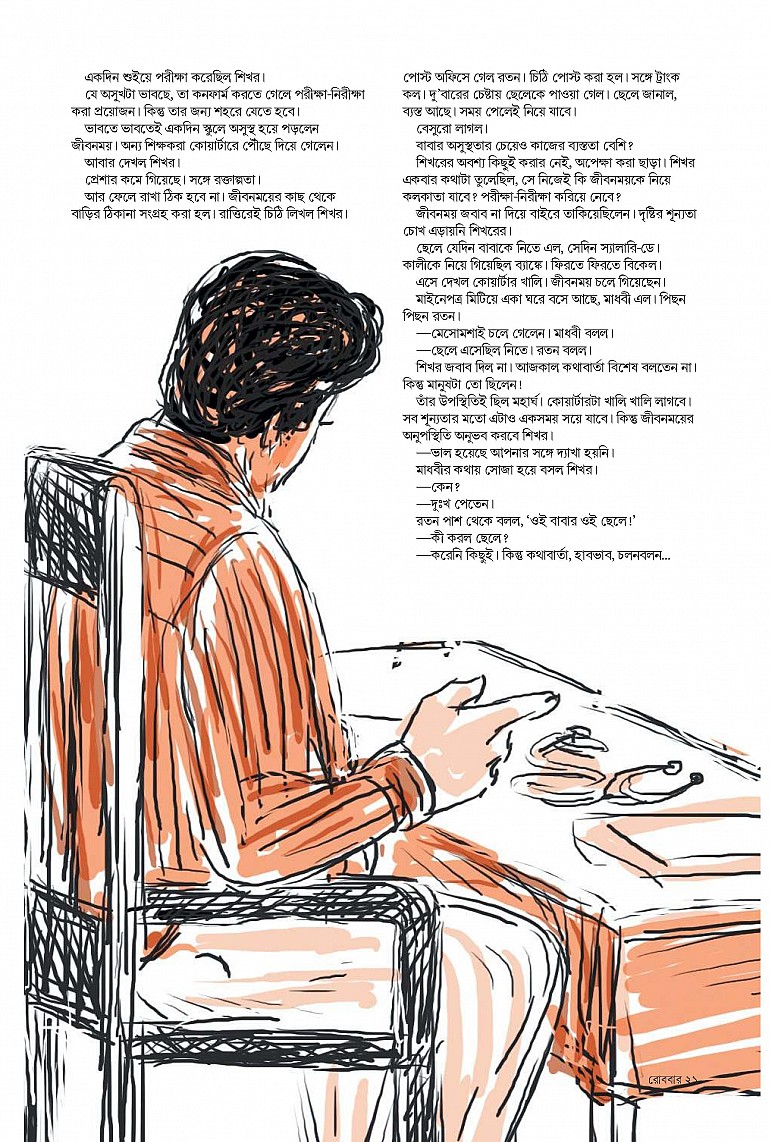 একদিন শুইয়ে পরীক্ষা করেছিল শিখর।
যে অসুখটা ভাবছে, তা কনফার্ম করতে গেলে পরীক্ষা-নিরীক্ষা
করা প্রয়োজন। কিন্তু তার জন্য শহরে যেতে হবে।
ভাবতে ভাবতেই একদিন স্কুলে অসুস্থ হয়ে পড়লেন
জীবনময়। অন্য শিক্ষকরা কোয়ার্টারে পৌঁছে দিয়ে গেলেন।
আবার দেখল শিখর।
প্রেশার কমে গিয়েছে। সঙ্গে রক্তাল্পতা।
আর ফেলে রাখা ঠিক হবে না। জীবনময়ের কাছ থেকে
বাড়ির ঠিকানা সংগ্রহ করা হল। রাত্তিরেই চিঠি লিখল শিখর।
পোস্ট অফিসে গেল রতন। চিঠি পোস্ট করা হল। সঙ্গে ট্রাংক
কল। দু'বারের চেষ্টায় ছেলেকে পাওয়া গেল। ছেলে জানাল,
ব্যস্ত আছে। সময় পেলেই নিয়ে যাবে।
বেসুরো লাগল।
বাবার অসুস্থতার চেয়েও কাজের ব্যস্ততা বেশি?
শিখরের অবশ্য কিছুই করার নেই, অপেক্ষা করা ছাড়া। শিখর
একবার কথাটা তুলেছিল, সে নিজেই কি জীবনময়কে নিয়ে
কলকাতা যাবে? পরীক্ষা-নিরীক্ষা করিয়ে নেবে?
জীবনময় জবাব না দিয়ে বাইরে তাকিয়েছিলেন। দৃষ্টির শূন্যতা
চোখ এড়ায়নি শিখরের।
ছেলে যেদিন বাবাকে নিতে এল, সেদিন স্যালারি-ডে।
কালীকে নিয়ে গিয়েছিল ব্যাঙ্কে। ফিরতে ফিরতে বিকেল।
এসে দেখল কোয়ার্টার খালি। জীবনময় চলে গিয়েছেন।
মাইনেপত্র মিটিয়ে একা ঘরে বসে আছে, মাধবী এল। পিছন
পিছন রতন।
—মেসোমশাই চলে গেলেন। মাধবী বলল।
—ছেলে এসেছিল নিতে। রতন বলল।
শিখর জবাব দিল না। আজকাল কথাবার্তা বিশেষ বলতেন না।
কিন্তু মানুষটা তো ছিলেন!
তাঁর উপস্থিতিই ছিল মহার্ঘ। কোয়ার্টারটা খালি খালি লাগবে।
সব শূন্যতার মতো এটাও একসময় সয়ে যাবে। কিন্তু জীবনময়ের
অনুপস্থিতি অনুভব করবে শিখর।
—ভাল হয়েছে আপনার সঙ্গে দ্যাখা হয়নি।
মাধবীর কথায় সোজা হয়ে বসল শিখর।
—কেন?
—দুঃখ পেতেন।
রতন পাশ থেকে বলল, 'ওই বাবার ওই ছেলে!'
—কী করল ছেলে?
—করেনি কিছুই। কিন্তু কথাবার্তা, হাবভাব, চলনবলন...
রোববার ২১